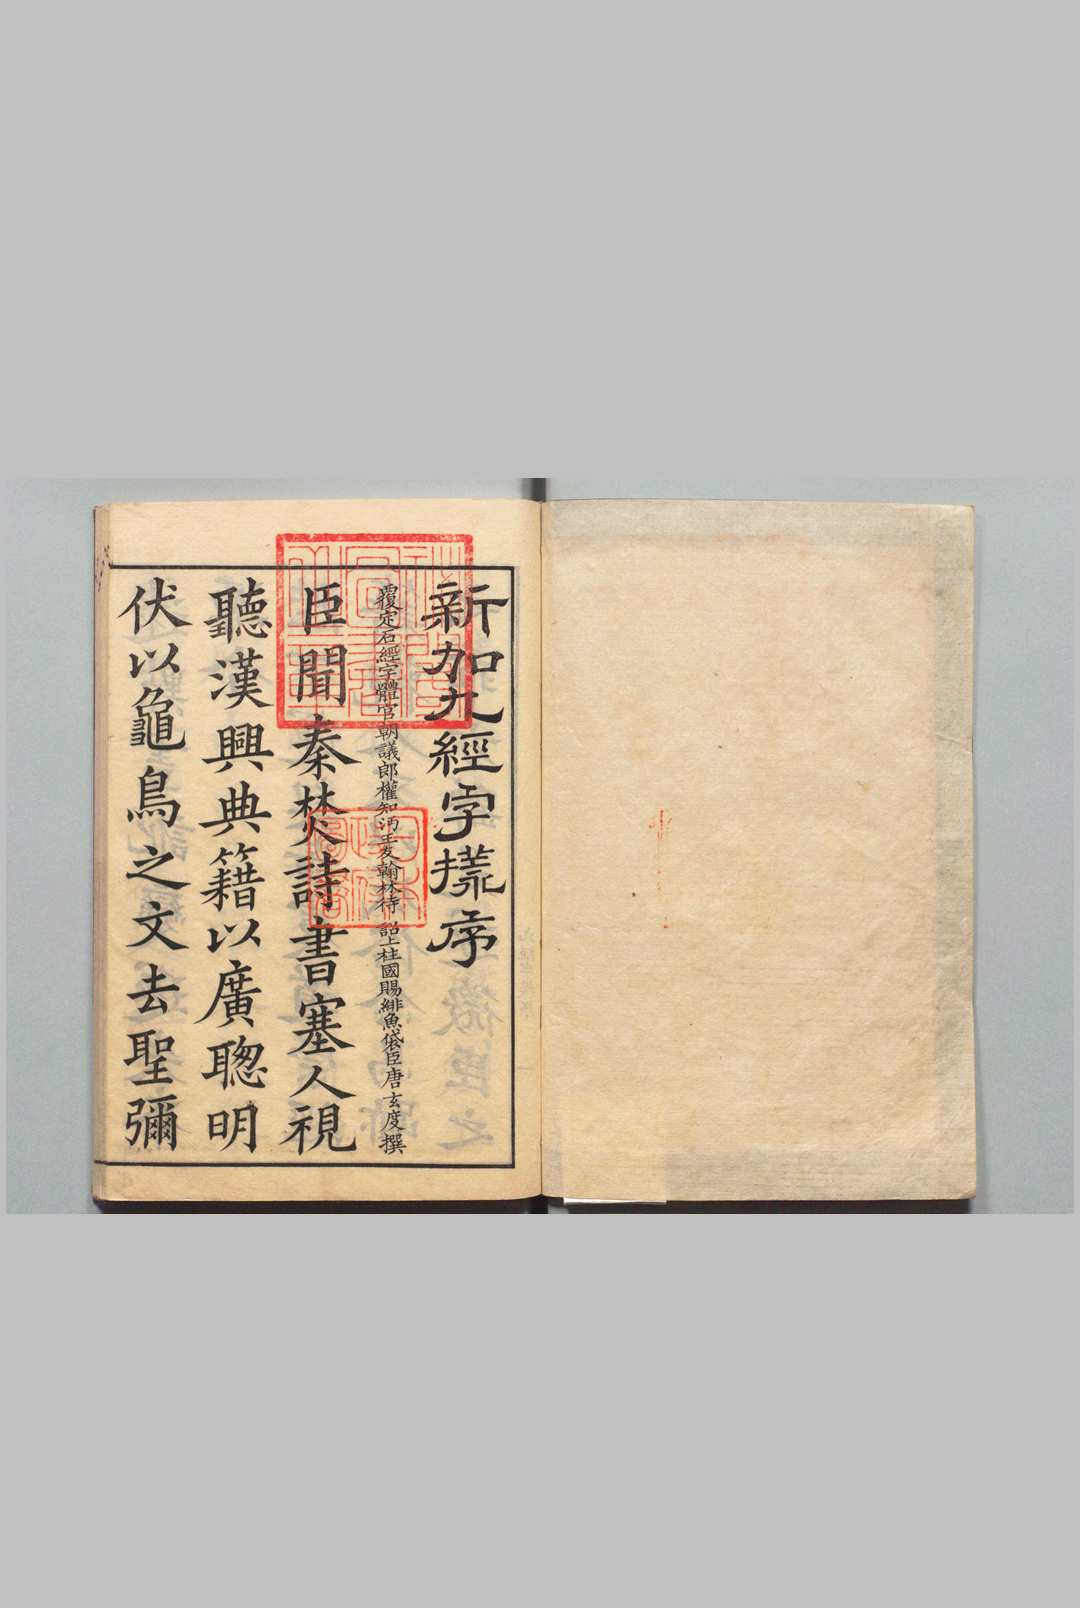 新加九經字㨾序
覆定石經字體官朝議郎權知沔王友翰林待 詔上柱國賜緋魚袋臣唐玄度撰
臣聞秦焚詩書塞人視
聽漢興典籍以廣聰明
伏以龜鳥之文去聖彌